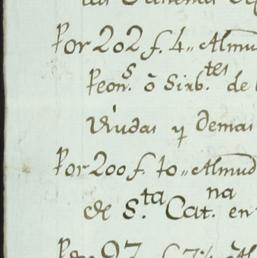 Por 202 f. 4,, Almud
Peon.s ô Sirb.tes de
Viudas y demas
Por 200 f. 10,, Almud
de S.ta Cat.na en